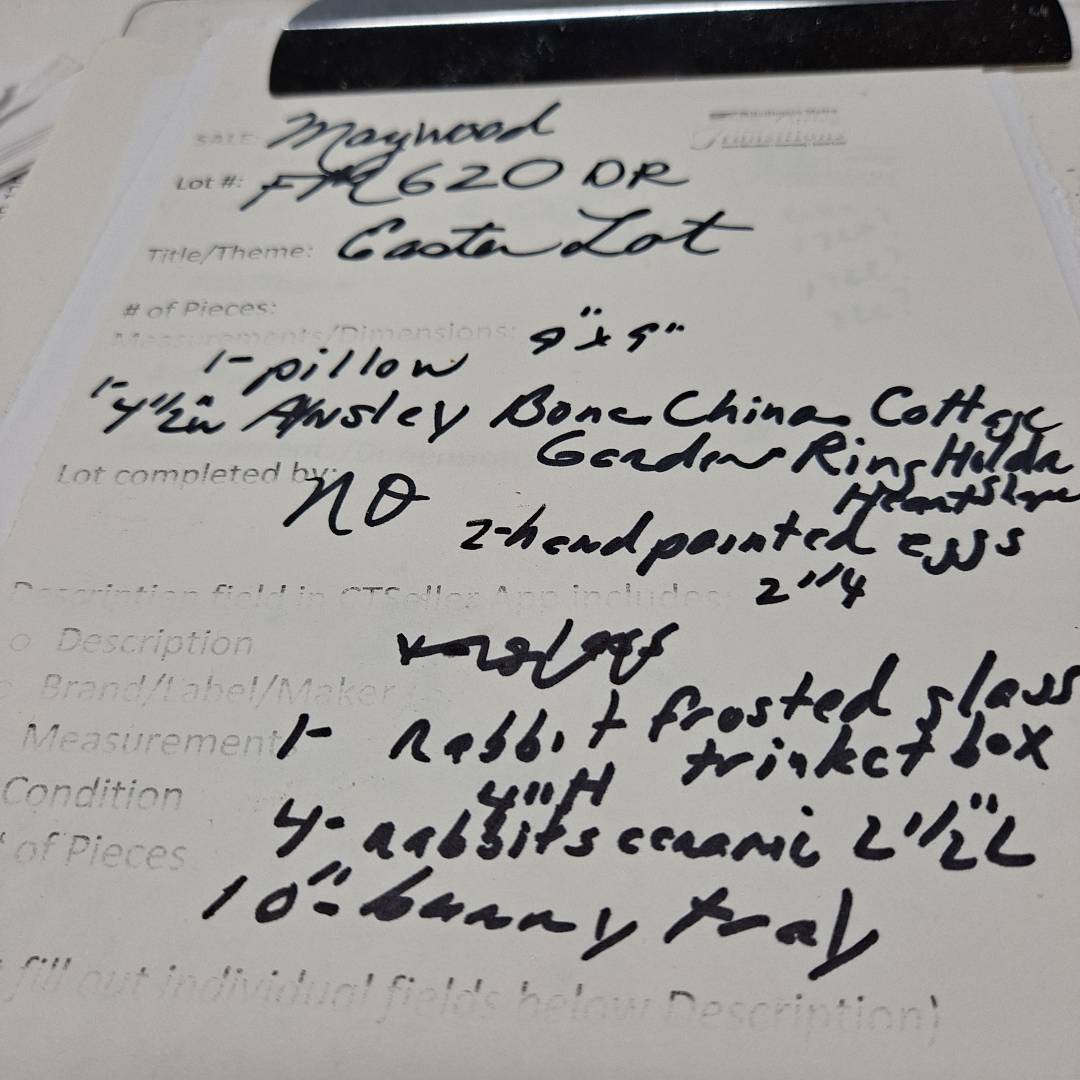 SALE: Maywood
Transitions
Lot #: 620 DR
Title/Theme: Easter Lot
# of Pieces:
Measurements/Dimensions: 9" x 9"
1- pillow
1- 4 1/2 in Aynsley Bone China Cottage
Garden Ring Holder
Heart Shape
Lot completed by: NO
2- hand painted eggs
2 1/4
Description field in CTSeller App includes:
o Description
Brand/Label/Maker
Measurement
1- Rabbit frosted glass
trinket box
4" H
Condition
4- Rabbits ceramic 2 1/2" L
of Pieces
10"- bunny tray
fill out individual fields below Description)